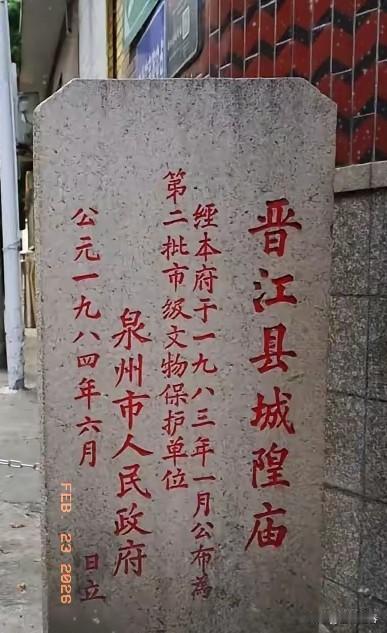 晋江县城隍庙
經本府于一九八三年一月公布為
第二批市级文物保护单位
泉州市人民政府
公元一九八四年六月 日立
FEB 23 2026